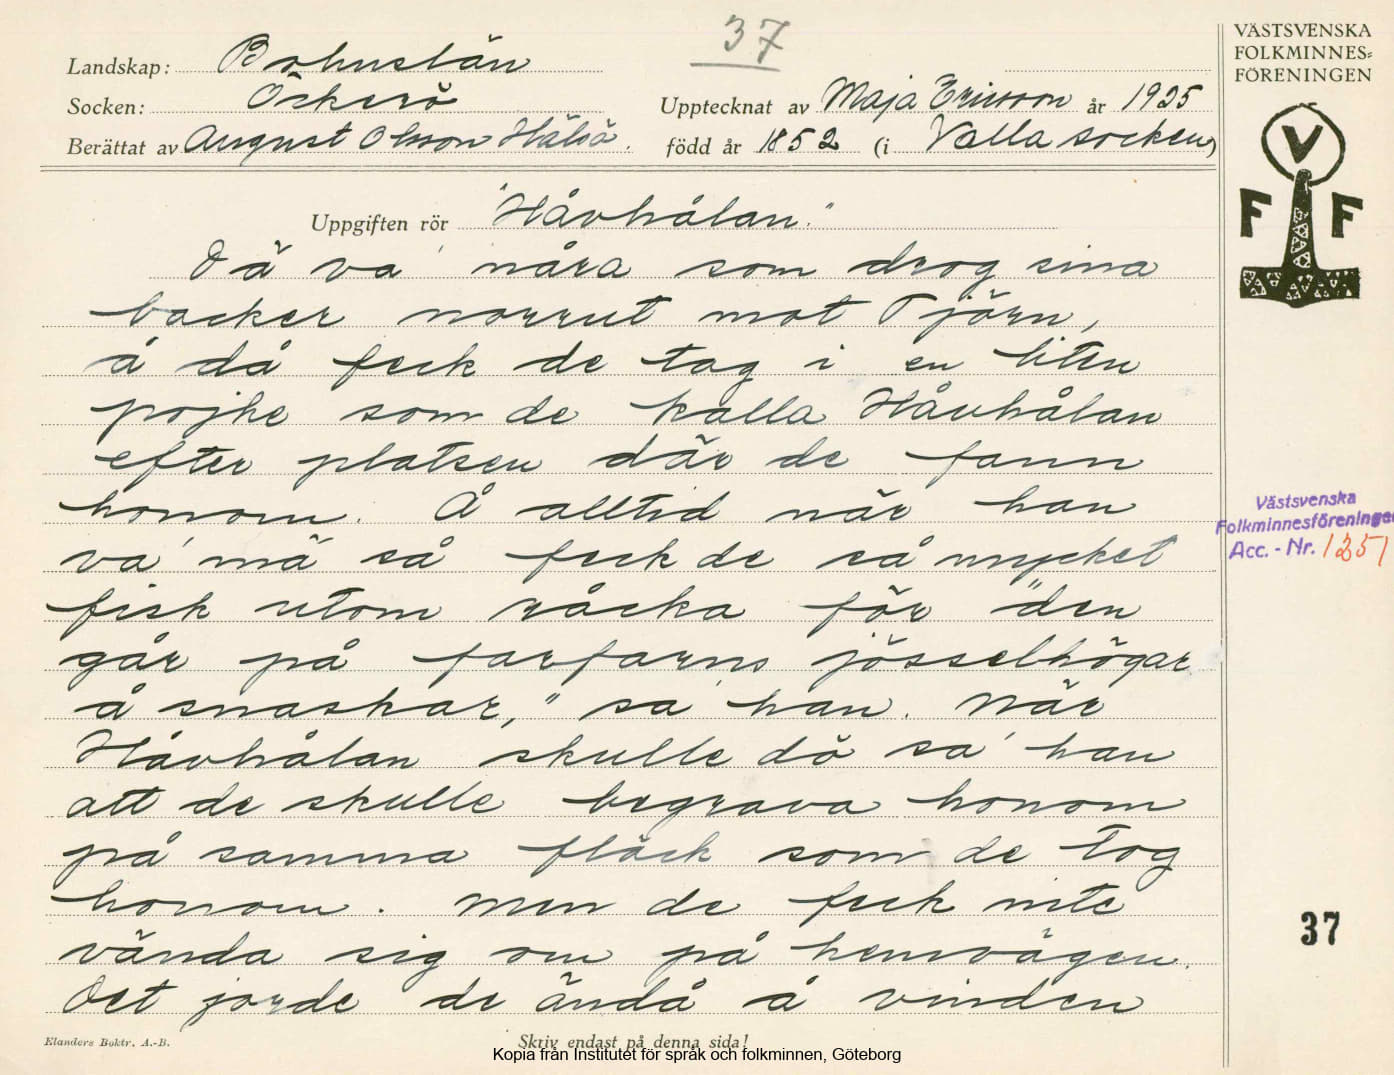 37
VÄSTSVENSKA
FOLKMINNES=
FÖRENINGEN
Landskap: Bohuslän
Socken: Öckerö
Upptecknat av Maja Ericsson år 1925
Berättat av August Olsson Hälsö.
född år 1852 (i Valla socken)
V
F F
Uppgiften rör "Håvhålan."
Dä va' måra som drog sina
backer norrut mot Tjörn,
å då feck de tag i en liten
pojke som de kalla Håvhålan
efter platsen där de fann
honom. Å alltid når han
va' mä så feck de så mycket
fisk utom råcka för "den
går på farfarns jösselhögar
å snaskar," sa' han. När
Håvhålan skulle dö sa' han
att de skulle begrava honom
på samma fläck som de tog
honom. Men de feck inte
vända sig om på hemvägen.
Det jorde de ändå å vinden
Västsvenska
Folkminnesföreningen
Acc. - Nr. 1251
37
Elanders Boktr. A.-B.
Skriv endast på denna sida!
Kopia från Institutet för språk och folkminnen, Göteborg